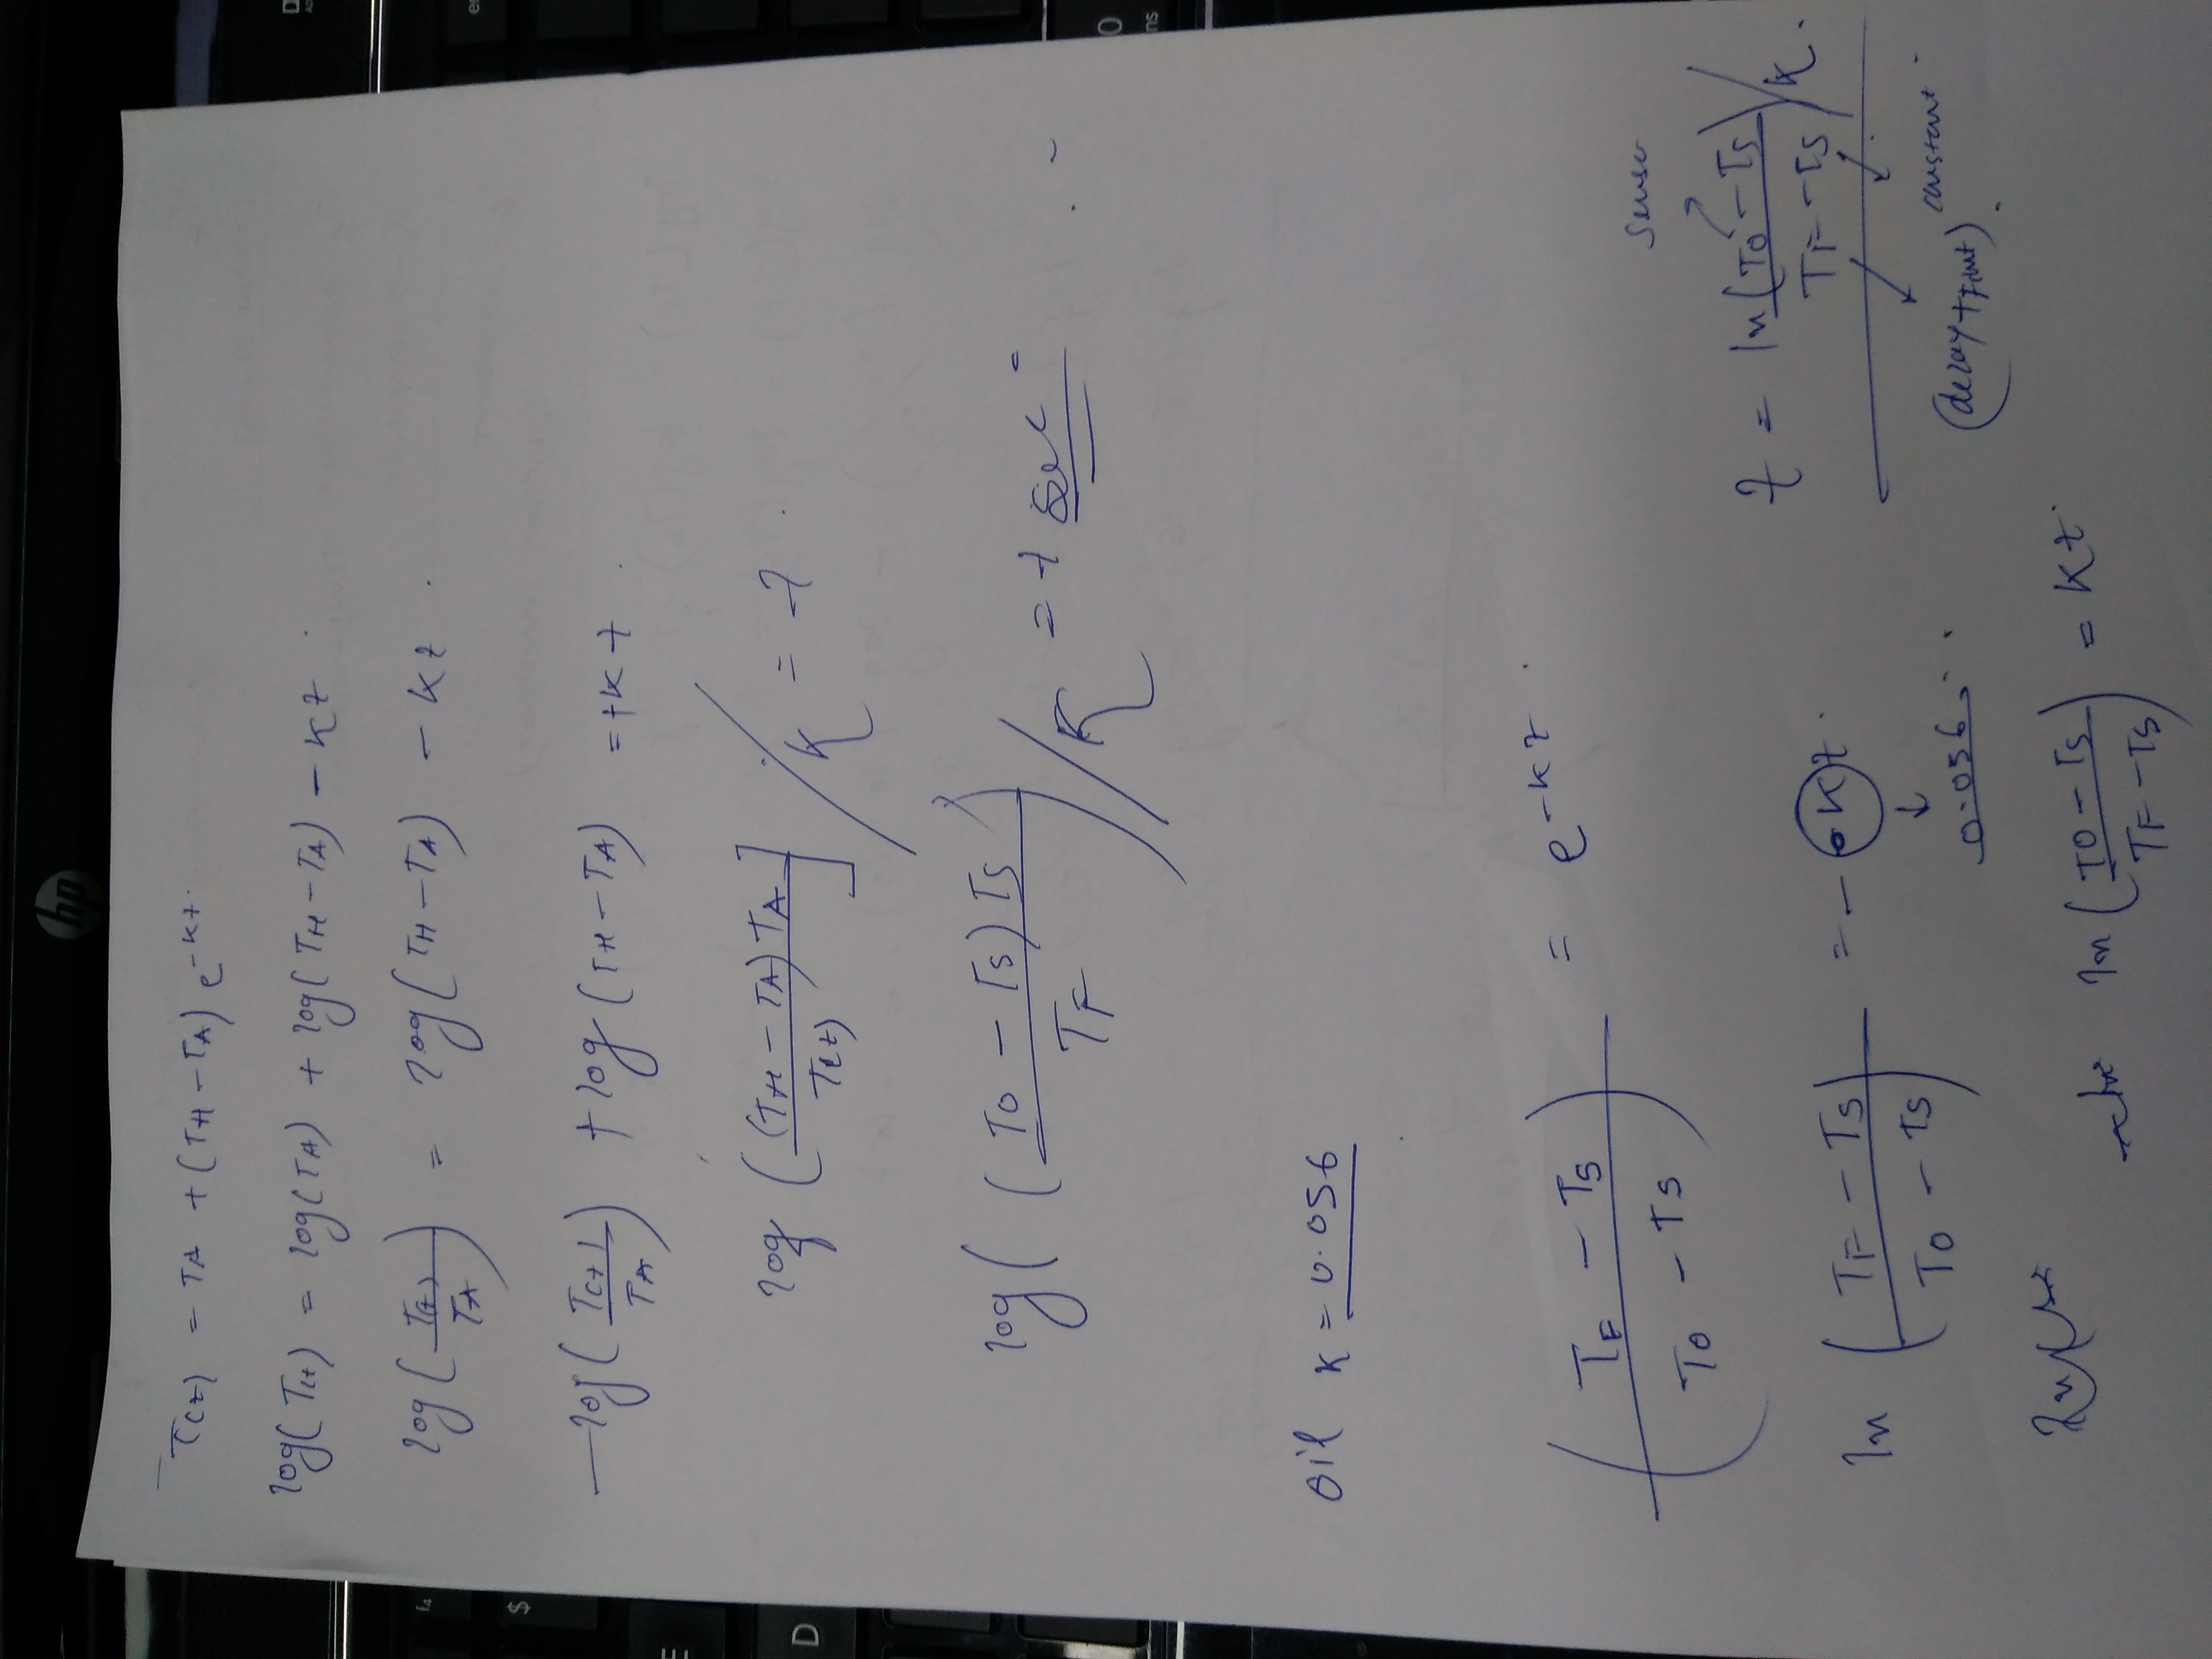 T(t) = TA + (TH - TA) e^-kt.
log(T(t)) = log(TA) + log(TH - TA) - kt.
log(T(t)/TA) = log(TH - TA) - kt.
-log(T(t)/TA) + log(TH - TA) = +kt.
log((TH - TA)TA/T(t))]/k = t.
log((T0 - Ts)Ts/TF)/k = t sec
oil k = 0.056
(TF - Ts/T0 - Ts) = e^-kt.
ln(TF - Ts/T0 - Ts) = - kt.
0.056.
ln(T0 - Ts/TF - Ts) = kt.
t = ln(T0 - Ts/TF - Ts)/k.
constant.
hp
D
$
f4